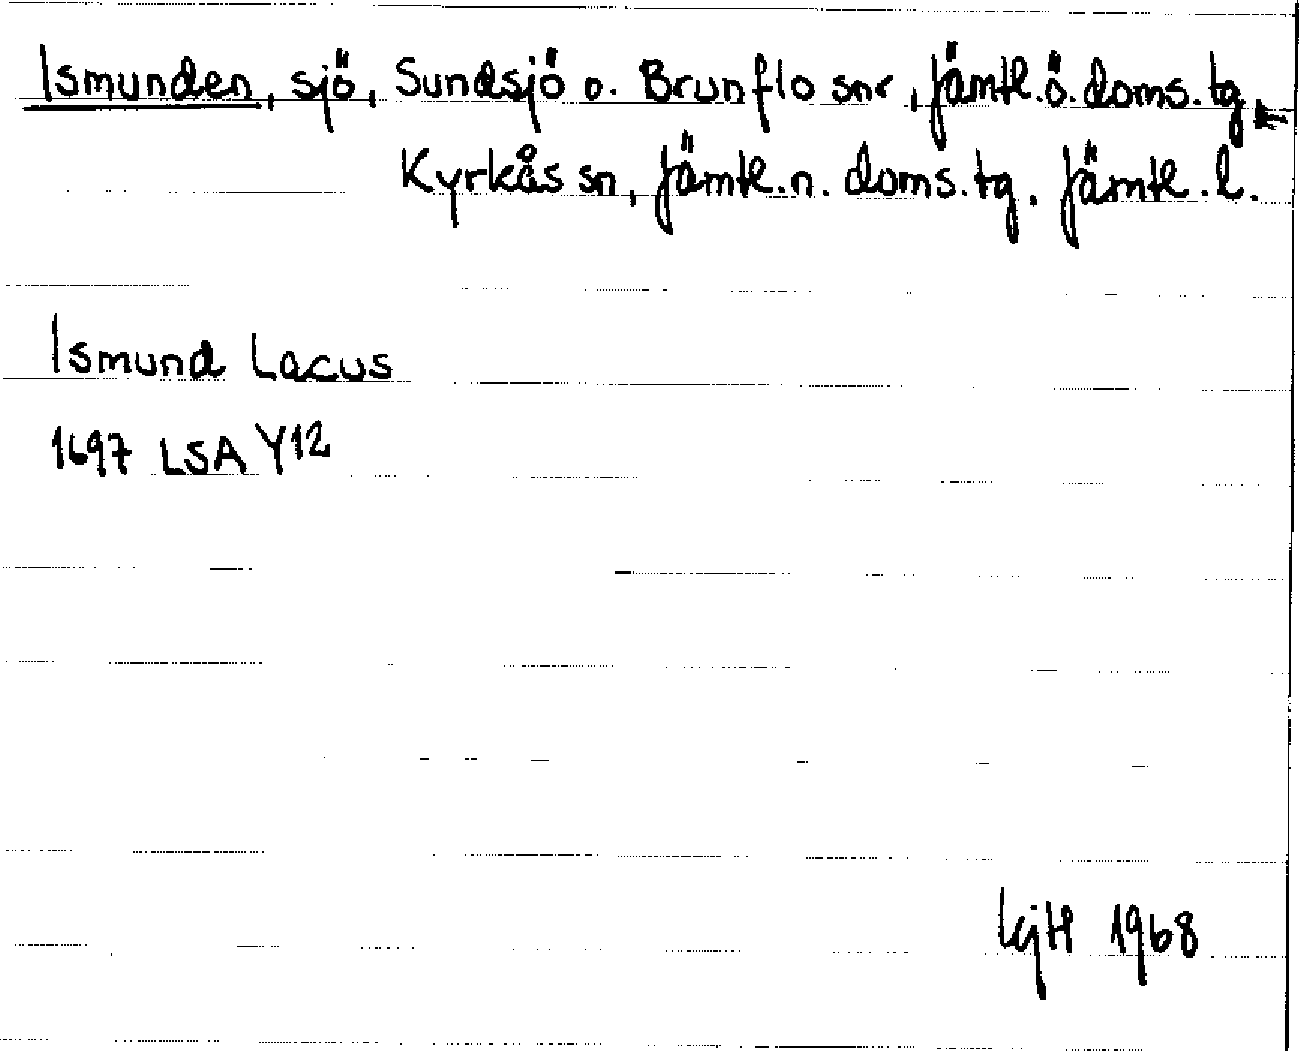 Ismunden, sjö, Sundsjö o. Brunflo snr, Jämtl.ö.doms.tg.
Kyrkås sn, Jämtl.n. doms.tg. Jämtl.l.
Ismund Lacus
1697 LSA Y12
1968